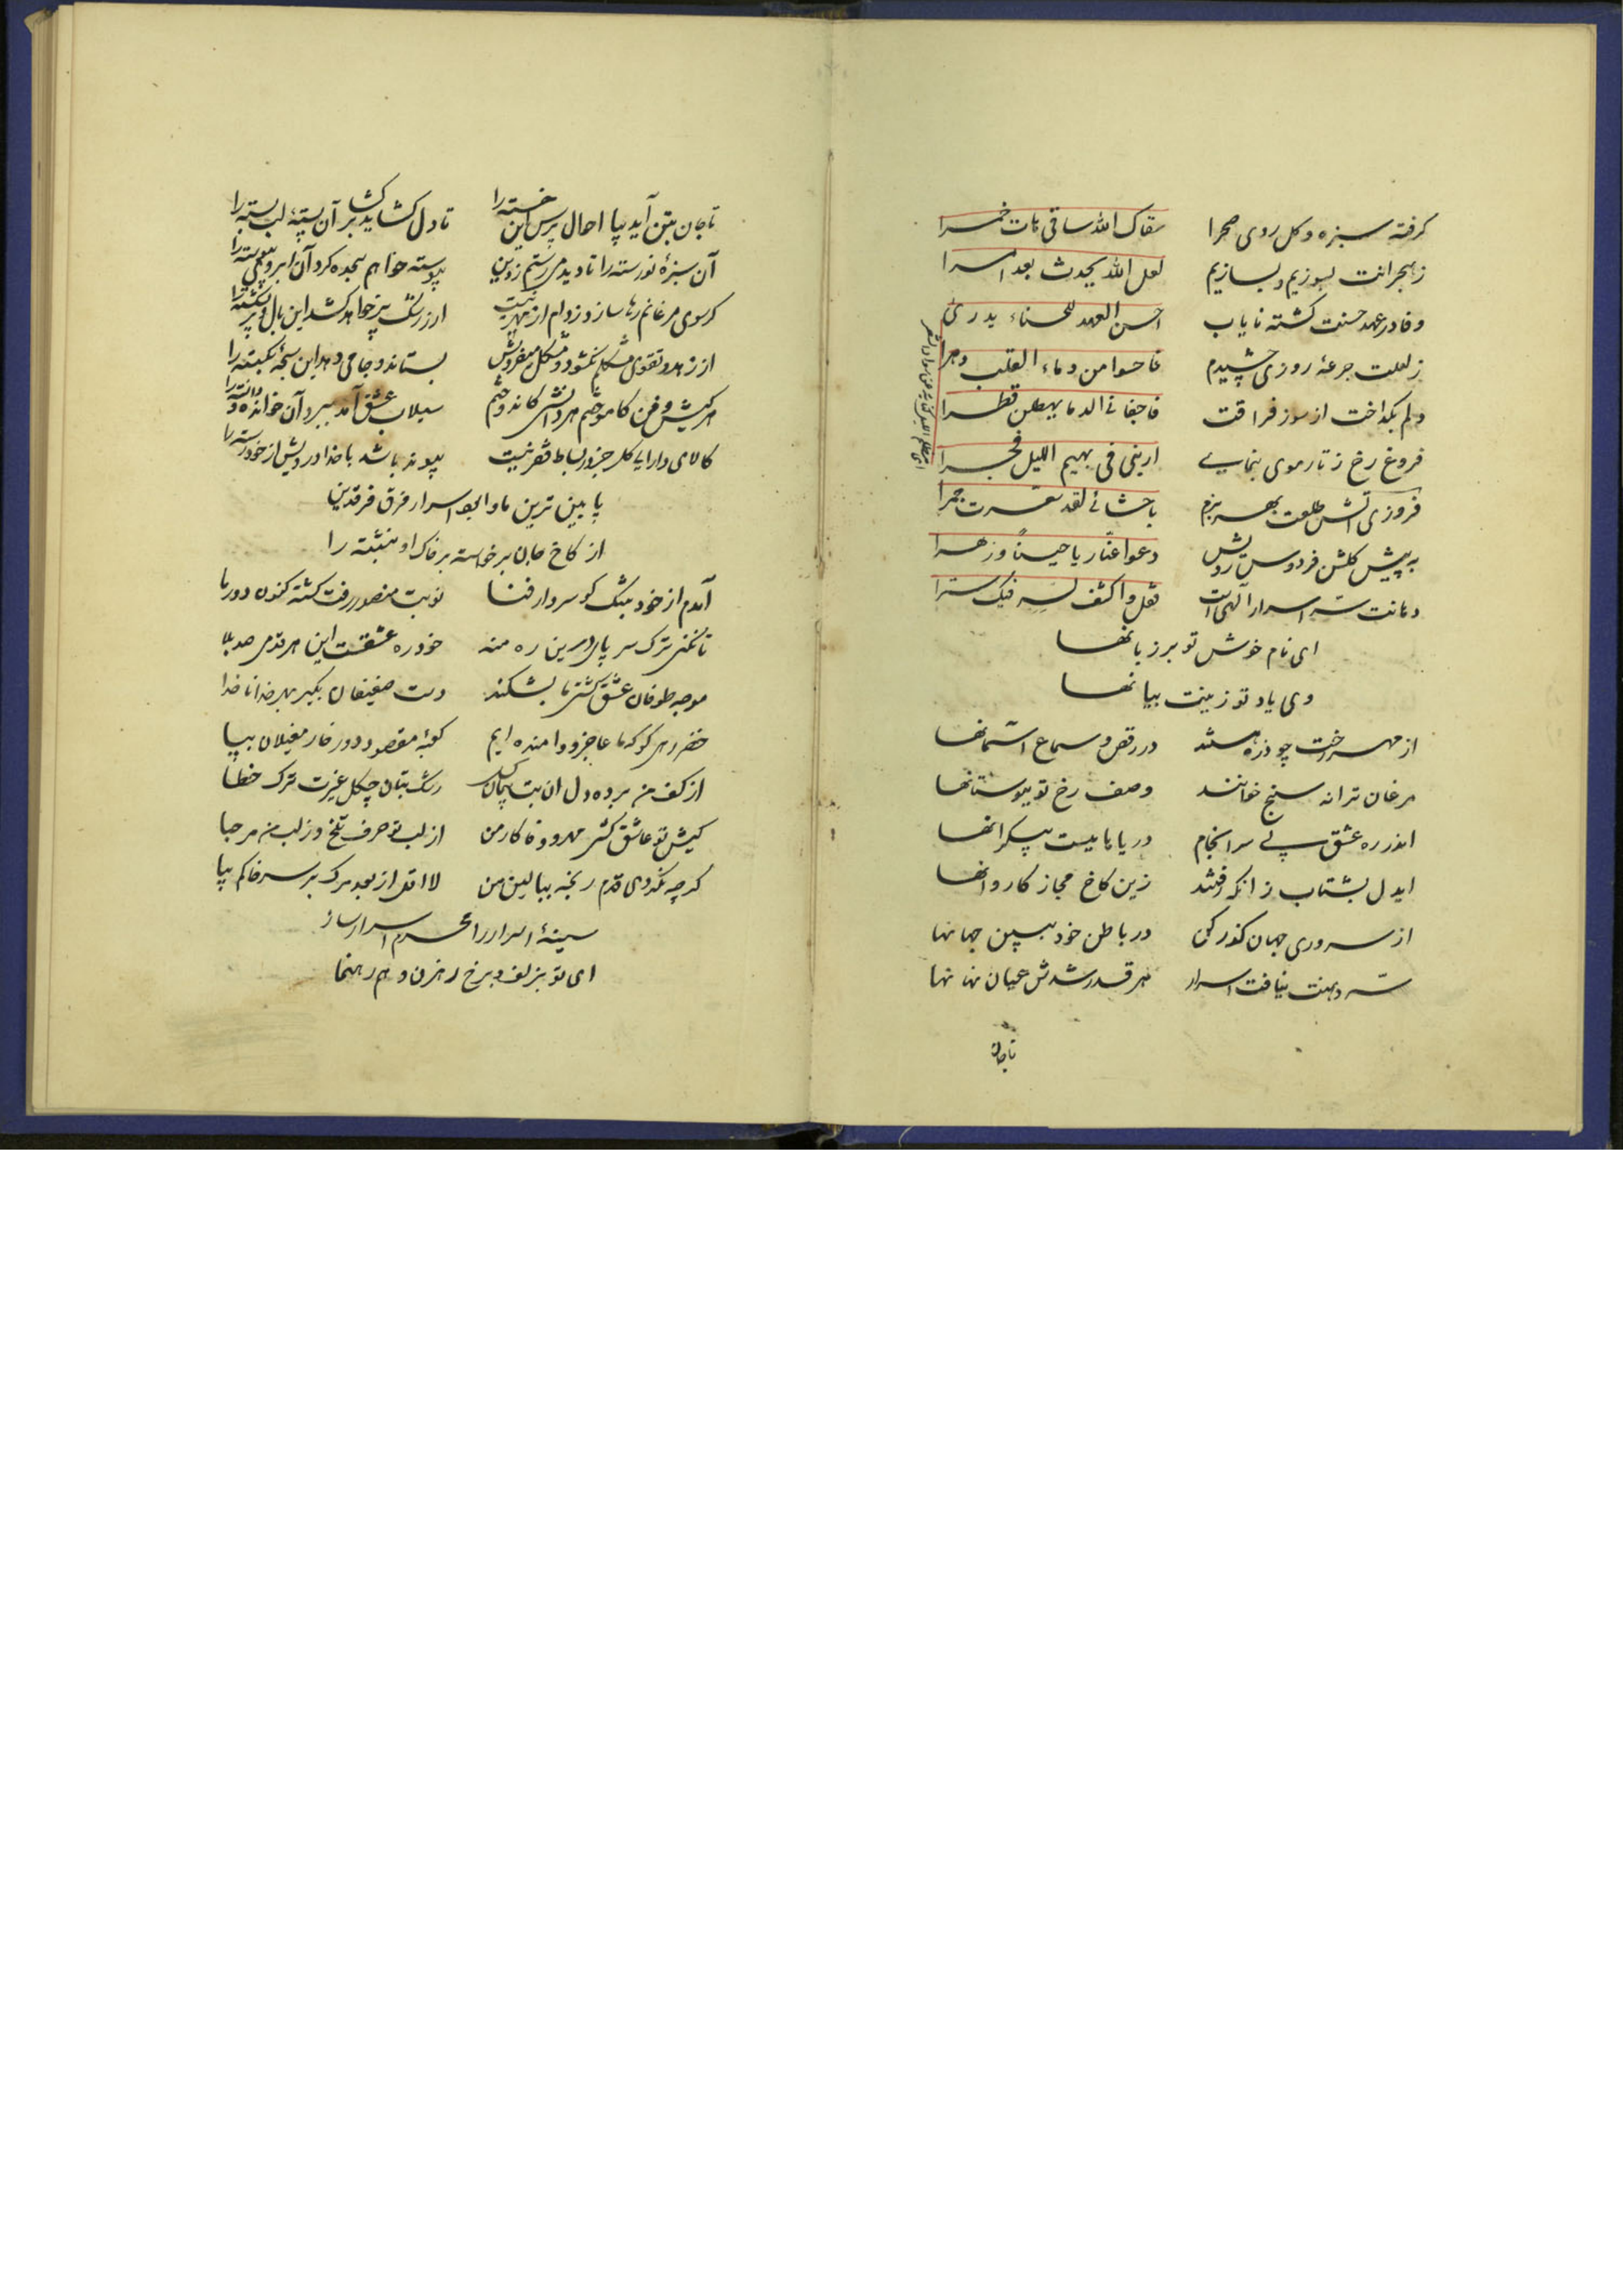 گرفته سبزه و گل روی صحرا سقاک الله ساقی هات خمرا
ز هجرانت بسوزیم و بسازیم لعل الله یحدث بعد امرا
وفا در عهد حسنت گشته نایاب احسن العهد للحسناء یدری
ز لعلت جرعهٔ روزی چشیدم فاحسوا من دماء القلب دهرا
دلم بگداخت از سوز فراقت فاجفانی الدما یهطلن قطرا
فروغ رخ ز تار موی بنمایی ارینی فی بهیم اللیل فجرا
فروزی آتش طلعت بهر بزم باحشائی لقد سعرت جمرا
به پیش گلشن فردوس رویش دعوا عنار یاحینًا و زهرا
دهانت سرّ اسرار الهی است فقل و اکشف لسر فیک سترا
ای نام خوش تو بر زبانها
وی یاد تو زینت بیانها
از مهر رخت چو ذره هستند در رقص و سماع آسمانها
مرغان ترانه سنج خوانند وصف رخ تو ببوستانها
اندر ره عشق بی سرانجام دریاهاییست بیکرانها
ایدل بشتاب زانکه رفتند زین کاخ مجاز کاروانها
از سروری جهان گذر کن در باطن خود ببین جهانها
سرّ دهنت نیافت اسرار هر قدر شدش عیان نهانها
تا جان
تا جان بتن آید بیا احوال پرس این خسته را تا دل گشاید برگشا آن پسته لب بسته را
آن سبزهٔ نورسته را تا دیدم رستم ز دین پیوسته خواهم سجده کرد آن ابروی پیوسته را
گر سوی مرغانم رها سازد ز دام از مهر نیست از رشک پر خواهد کشد این بال و پر بشکسته را
از زهد و تقوی مشکلم نگشود و مشکل میفروش بستاند و جامی دهد این سبحهٔ بگسسته را
هر کیش و فن کاموختم هر دانشی کاندوختم سیلاب عشق آمد ببرد آن خوانده و دانسته را
کالای دارایی کل جز در بساط فقر نیست پیوند باشد با خدا درویش از خود رسته را
پایین ترین ماوا بود اسرار فرق فرقدین
از کاخ جان برخواسته بر خاک او بنشسته را
آمدم از خود بتنگ کو سردار فنا نوبت منصور رفت گشته کنون دور ما
تا نکنی ترک سر پای درین ره منه خود ره عشقست این هر قدمی صد بلا
موجه طوفان عشق کشتی ما بشکند دست ضعیفان بگیر بهر خدا ناخدا
خضر رهی کو که ما عاجز و وامانده ایم کعبهٔ مقصود دور خار مغیلان بپا
از کف من برده دل آن بت پیمان گسل رشک بتان چگل غیرت ترک خطا
کیش تو عاشق کشی مهر و وفا کار من از لب تو حرف تلخ وز لب من مرحبا
گرچه نکردی قدم رنجه ببالین من لااقل از بعد مرگ بر سر خاکم بیا
سینهٔ اسرار را محرم اسرار ساز
ای تو بزلف و برخ رهزن و هم رهنما